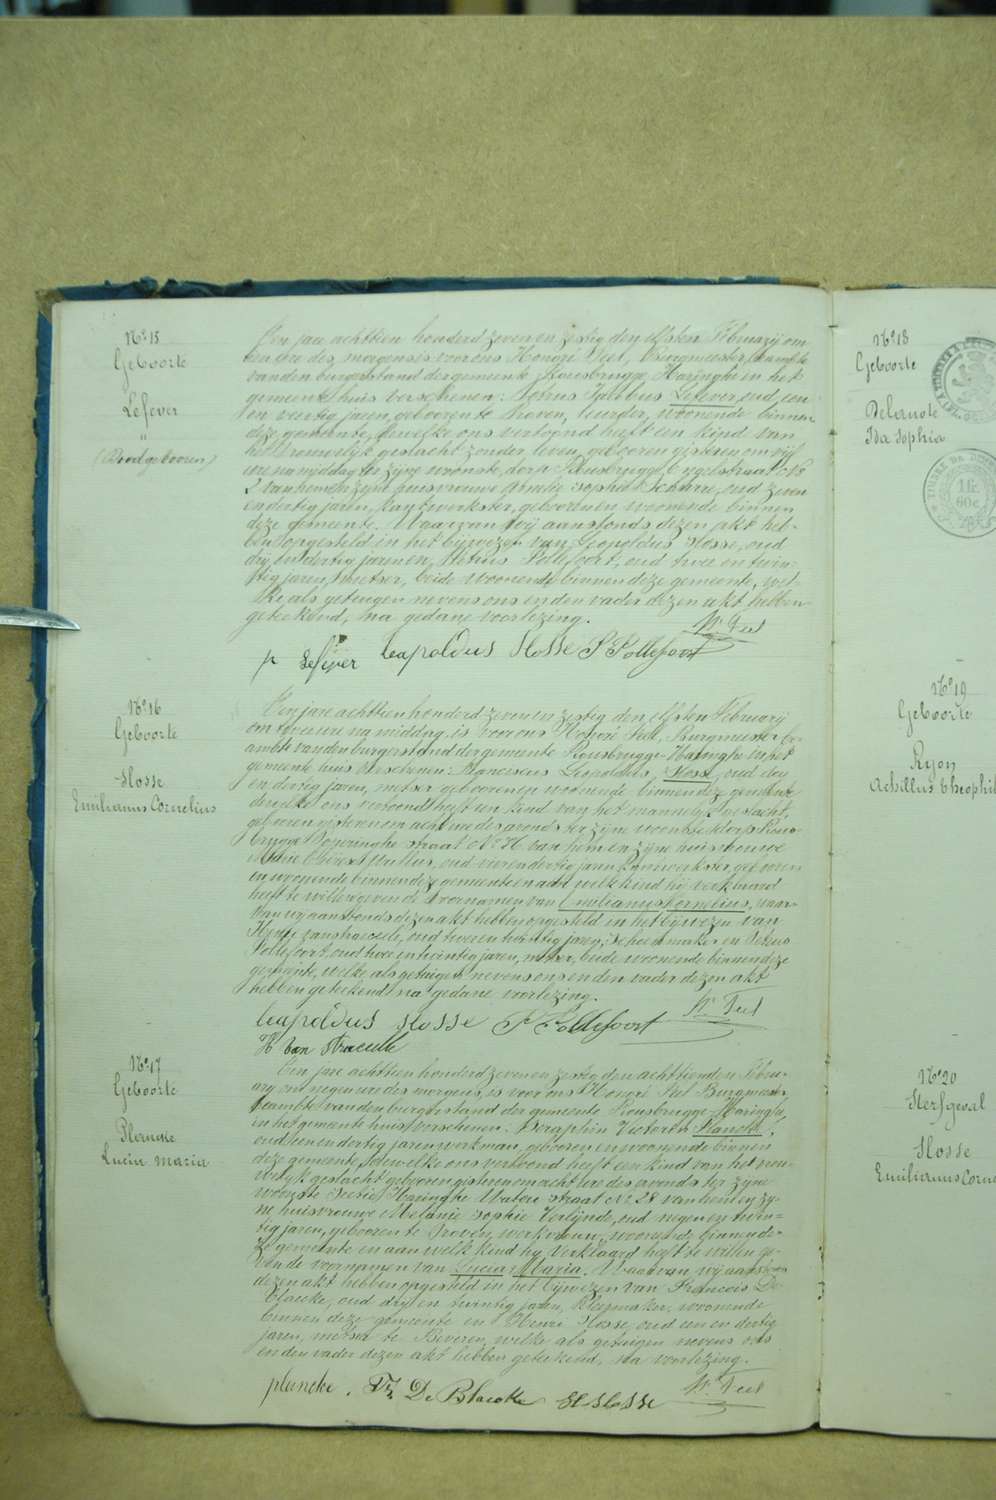 N° 15
Geboorte
Lefever
"
(Doodgebooren)
Een jare achttien honderd zeven en zestig den elfsten February om
tien ure des morgens voor ons Honoré Feel, Burgmeester, beambte
van den burgerstand der gemeente Rousbrugge-Haringhe in het
gemeente huis verschenen: Jacobus Lefever, oud een
en veertig jaren, geboren te Proven, woonende binnen
deze gemeente, dewelke ons vertoond heeft een kind van
het vrouwelyk geslacht zonder leven, geboren gisteren om vyf
ure namiddag ter zyne woonste, dorp Rousbrugge straat N°
2 van hem en zyne huisvrouwe Sophie oud zeven
en dertig jaren, kantwerkster, geboor en woonende binnen
deze gemeente. Waarvan wy aanstonds dezen akt heb-
ben opgesteld in het bywezen van Leopoldus Hosse, oud
dry en dertig jaren en Petrus Pollefoort, oud twee en twin-
tig jaren, metser, beide woonende binnen deze gemeente, wel-
ke als getuigen nevens ons en den vader dezen akt hebben
geteekend, na gedane voorlezing.
H. Feel
p Lefever Leopoldus Hosse P Pollefoort
N° 16
Geboorte
Hosse
Emilianus Cornelius
Een jare achttien honderd zeven en zestig den elfsten February
om twee ure na middag, is voor ons Honoré Feel, Burgmeester be-
ambte van den burgerstand der gemeente Rousbrugge-Haringhe in het
gemeente huis verschenen: Franciscus Leopoldus Hosse, oud dry
en dertig jaren, metser geboren en woonende binnen deze gemeente
dewelke ons vertoond heeft een kind van het mannelyk geslacht,
geboren gisteren om acht ure des avonds ter zyne woonste dorp Rous-
brugge Poperinghe straat N° van hem en zyne huisvrouwe
Marie Therese oud vier en dertig jaren kantwerkster geboren
en woonende binnen deze gemeente en aan welk kind hy verklaard
heeft te willen geven de voornamen van Emilianus Cornelius, waar-
van wy aanstonds dezen akt hebben opgesteld in het bywezen van
Henri van Straceele, oud twee en twintig jaren, schoenmaker en Petrus
Pollefoort, oud twee en twintig jaren, metser, beide woonende binnen deze
gemeente, welke als getuigen nevens ons en den vader dezen akt
hebben geteekend na gedane voorlezing.
H. Feel
Leopoldus Hosse P Pollefoort
H Van Straceele
N° 17
Geboorte
Plancke
Lucia Maria
Een jare achttien honderd zeven en zestig den achttienden Febru-
ary om negen ure des morgens, is voor ons Honoré Feel Burgmeester,
beambte van den burgerstand der gemeente Rousbrugge-Haringhe,
in het gemeente huis verschenen: Seraphin Victoren Plancke,
oud een en dertig jaren werkman, geboren en woonende binnen
deze gemeente, dewelke ons vertoond heeft een kind van het vrou-
welyk geslacht geboren gisteren om acht ure des avonds ter zyne
woonste sectie Haringhe straat N° 28 van hem en zy-
ne huisvrouwe Melanie Sophie Verlynde, oud negen en twin-
tig jaren, gebooren te Proven, werkvrouw, woonende binnen de-
ze gemeente en aan welk kind hy verklaard heeft te willen ge-
ven de voornamen van Lucia Maria. Waarvan wy aanstonds
dezen akt hebben opgesteld in het bywezen van Francois De
Blaecke, oud dry en twintig jaren, woonende
binnen deze gemeente en Henri Hosse, oud een en dertig
jaren, metser te Beveren, welke als getuigen nevens ons
en den vader dezen akt hebben geteekend, na voorlezing.
H. Feel
plancke. Fr De Blaecke H Hosse
N° 18
Geboorte
Delanote
Ida Sophia
N° 19
Geboorte
Ryon
Achillus Theophil
N° 20
Sterfgeval
Hosse
Emilianus Corne